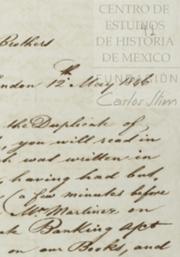 CENTRO DE
ESTUDIOS
DE HISTORIA
DE MEXICO
FUNDACIÓN
Carlos Slim
Brothers
London 12th May 1866
the Duplicate of
you will read in
was written in
having had but
(a few minutes before
Mr Martinez on
Banking Act
on our Books, and